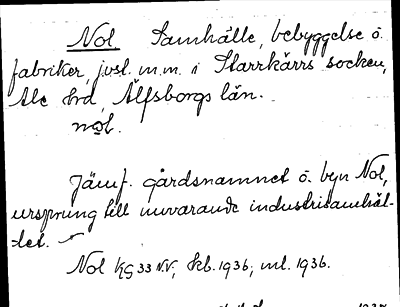 Nol Samhälle, bebyggelse o.
fabriker, jvst. m.m. i Starrkärrs socken,
Ale hrd, Älfsborgs län.
nol.
Jämf. gårdsnamnet o. byn Nol,
ursprung till nuvarande industrisamhäl-
let.
Nol KG 33 N.V., kb. 1936, ml. 1936.